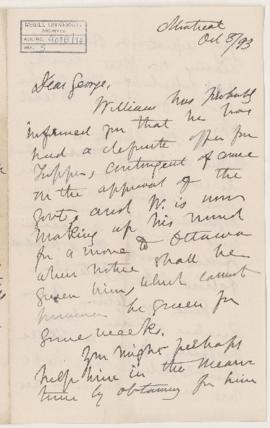 McGILL UNIVERSITY
ARCHIVES
ACC. NO.
REF. 5
Montreal
Oct 3/93
Dear George,
William has probably
informed you that he has
had a definite offer from
Tupper, contingent of course
on the approval of the
Govt, and W. is now
making up his mind
for a move to Ottawa
when notice shall be
given him, which cannot
however be given for
some weeks.
You might perhaps
help him in the mean-
time by obtaining for him